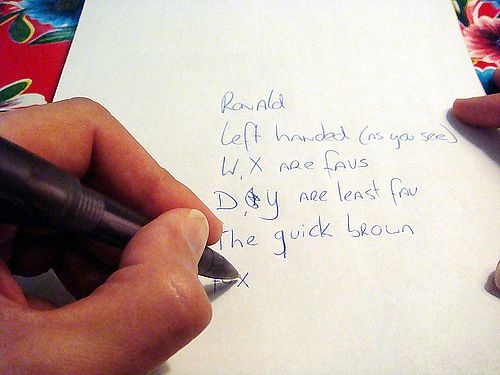 Ronald
Left handed (as you see)
W, X are favs
D, Y are least fav
The quick brown